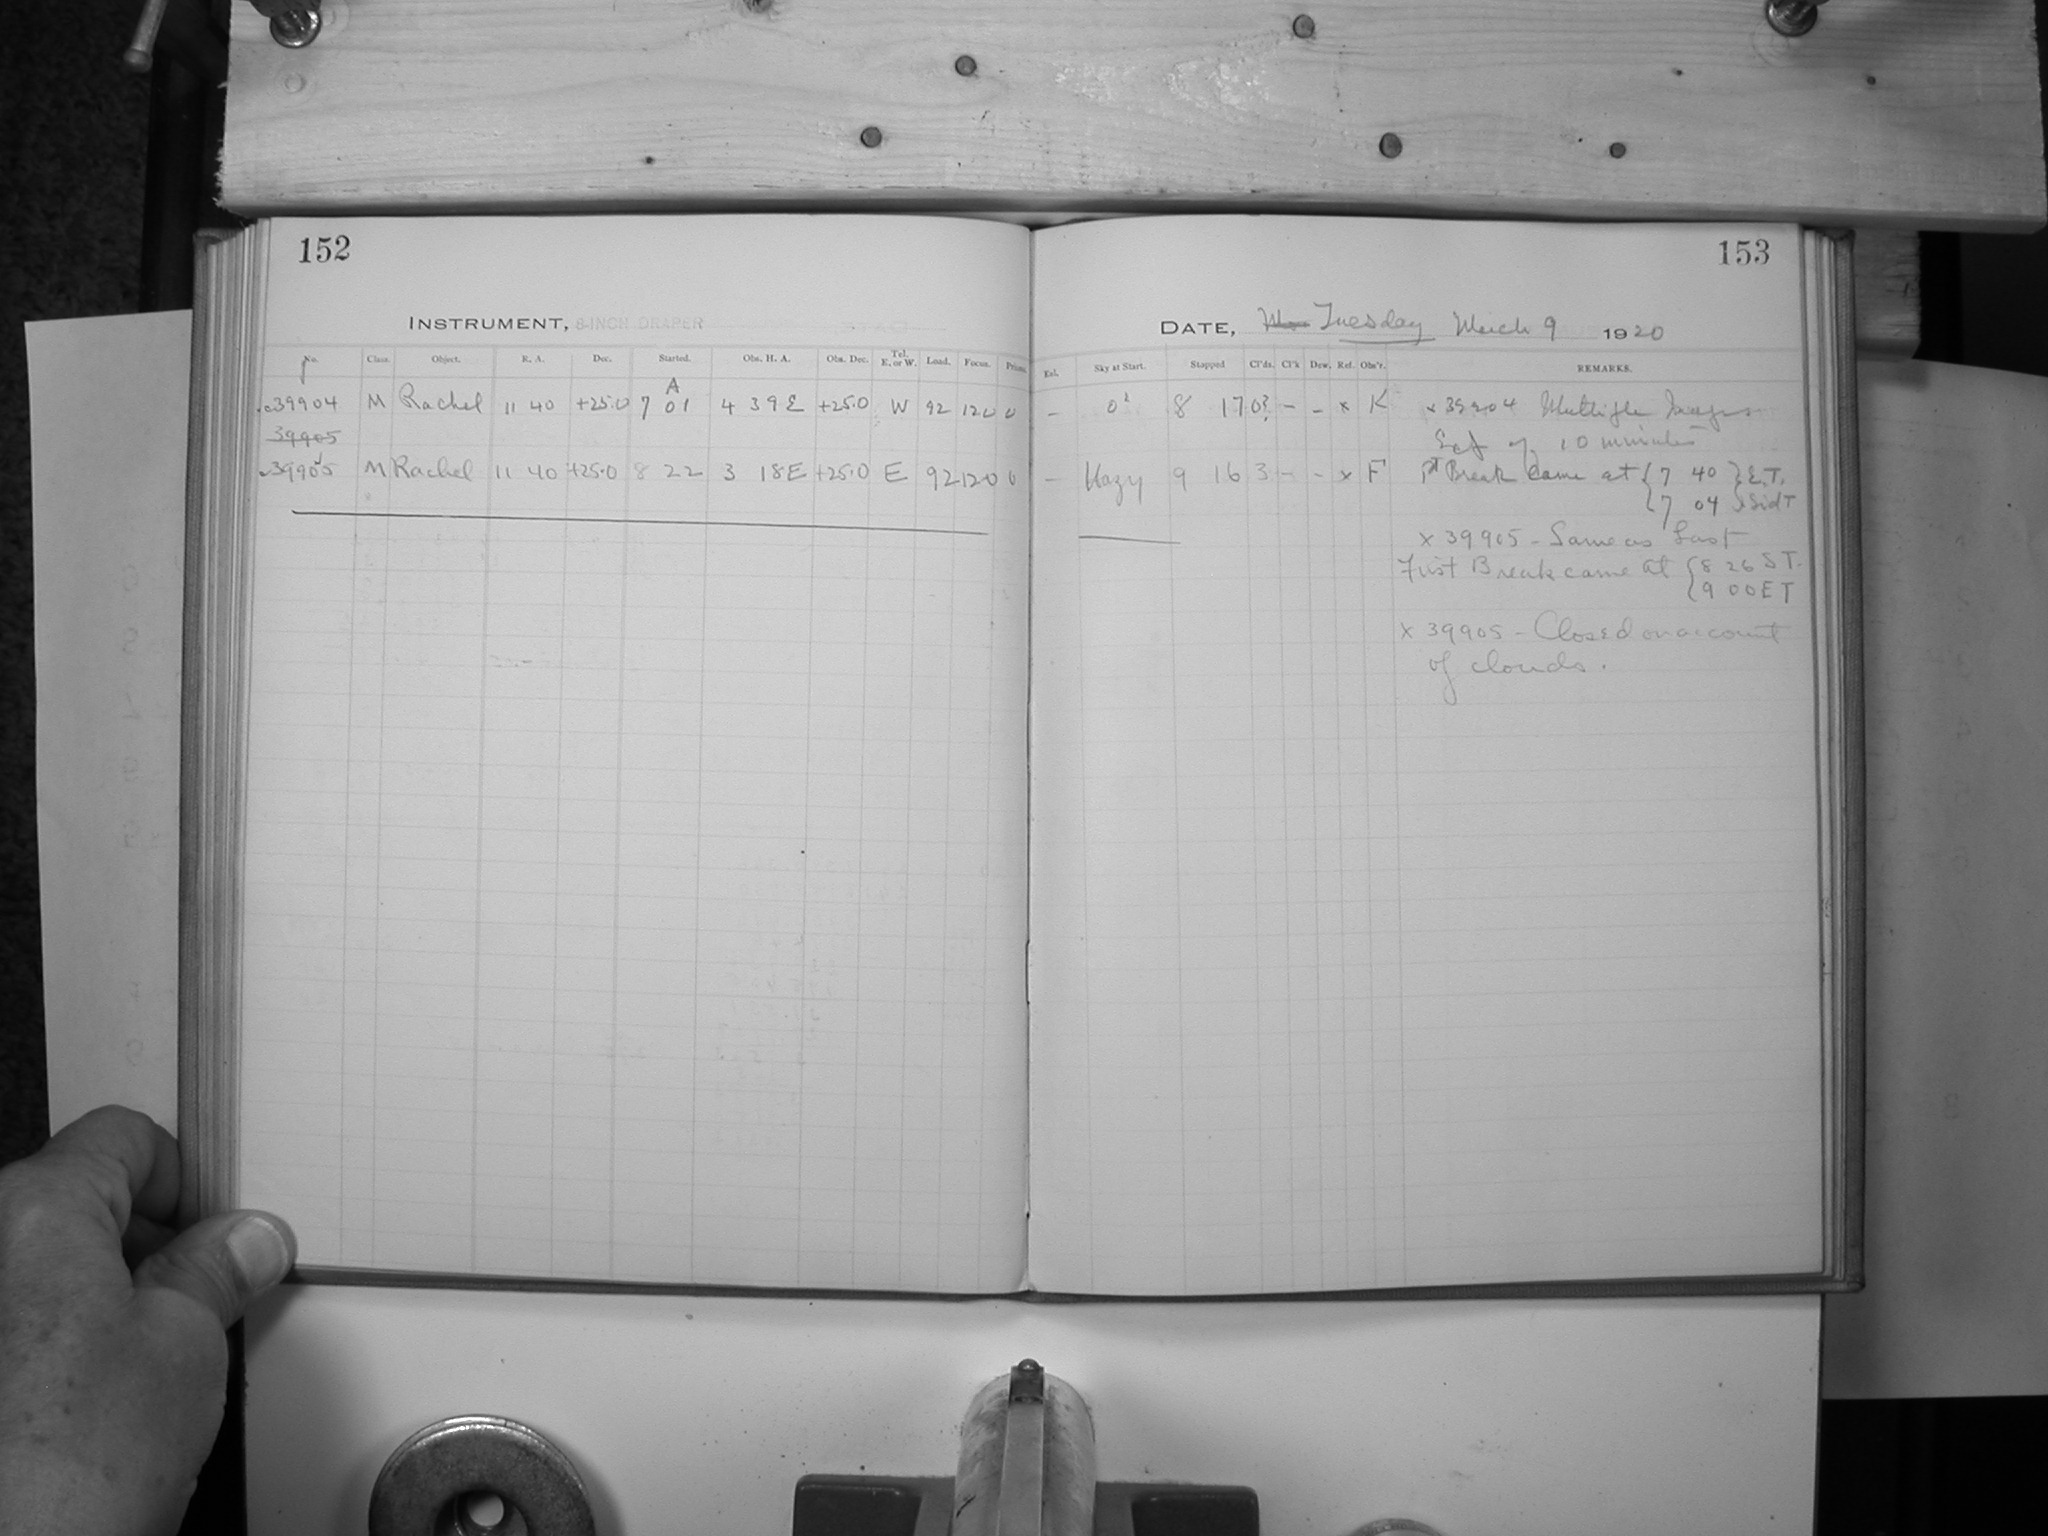 152
153
INSTRUMENT, 8-INCH DRAPER
DATE, Tuesday March 9 1920
No. Class. Object. R. A. Dec. Started. Obs. H. A. Obs. Dec. Tel. E. or W. Load. Focus. Prisms.
Exl. Sky at Start. Stopped Cl'ds. Cl'k Dew. Ref. Obs'r. REMARKS.
A
39904 M Rachel 11 40 +25.0 7 01 4 39 E +25.0 W 92 120 0
- 8 17 0? - - x K x 39904 Multiple Images
39905
Set of 10 minutes
39905 M Rachel 11 40 +25.0 8 22 3 18 E +25.0 E 92 120 0
- Hazy 9 16 3 - - x F Break came at { 7 40 } E.T.
{ 7 04 } Sid T
x 39905 - Same as Last
First Break came at { 8 26 S T.
{ 9 00 E T
x 39905 - Closed on account
of clouds.